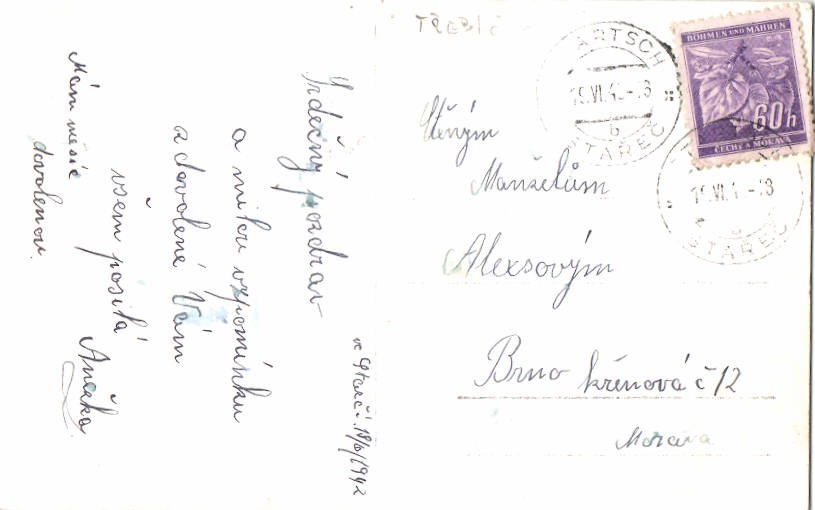 TŘEBÍČ
ve Starči 18/6 1942
Srdečný pozdrav
a milou vzpomínku
z dovolené Vám
všem posílá
Anežka
Mám měsíc
dovolenou.
Ctěným
Manželům
Alexsovým
Brno křenová č 12
Morava
BÖHMEN UND MÄHREN
60h
ČECHY A MORAVA
ARTSCH
19.VI.4 -18
b
STAŘEČ
19.VI.4 -18
STAŘEČ